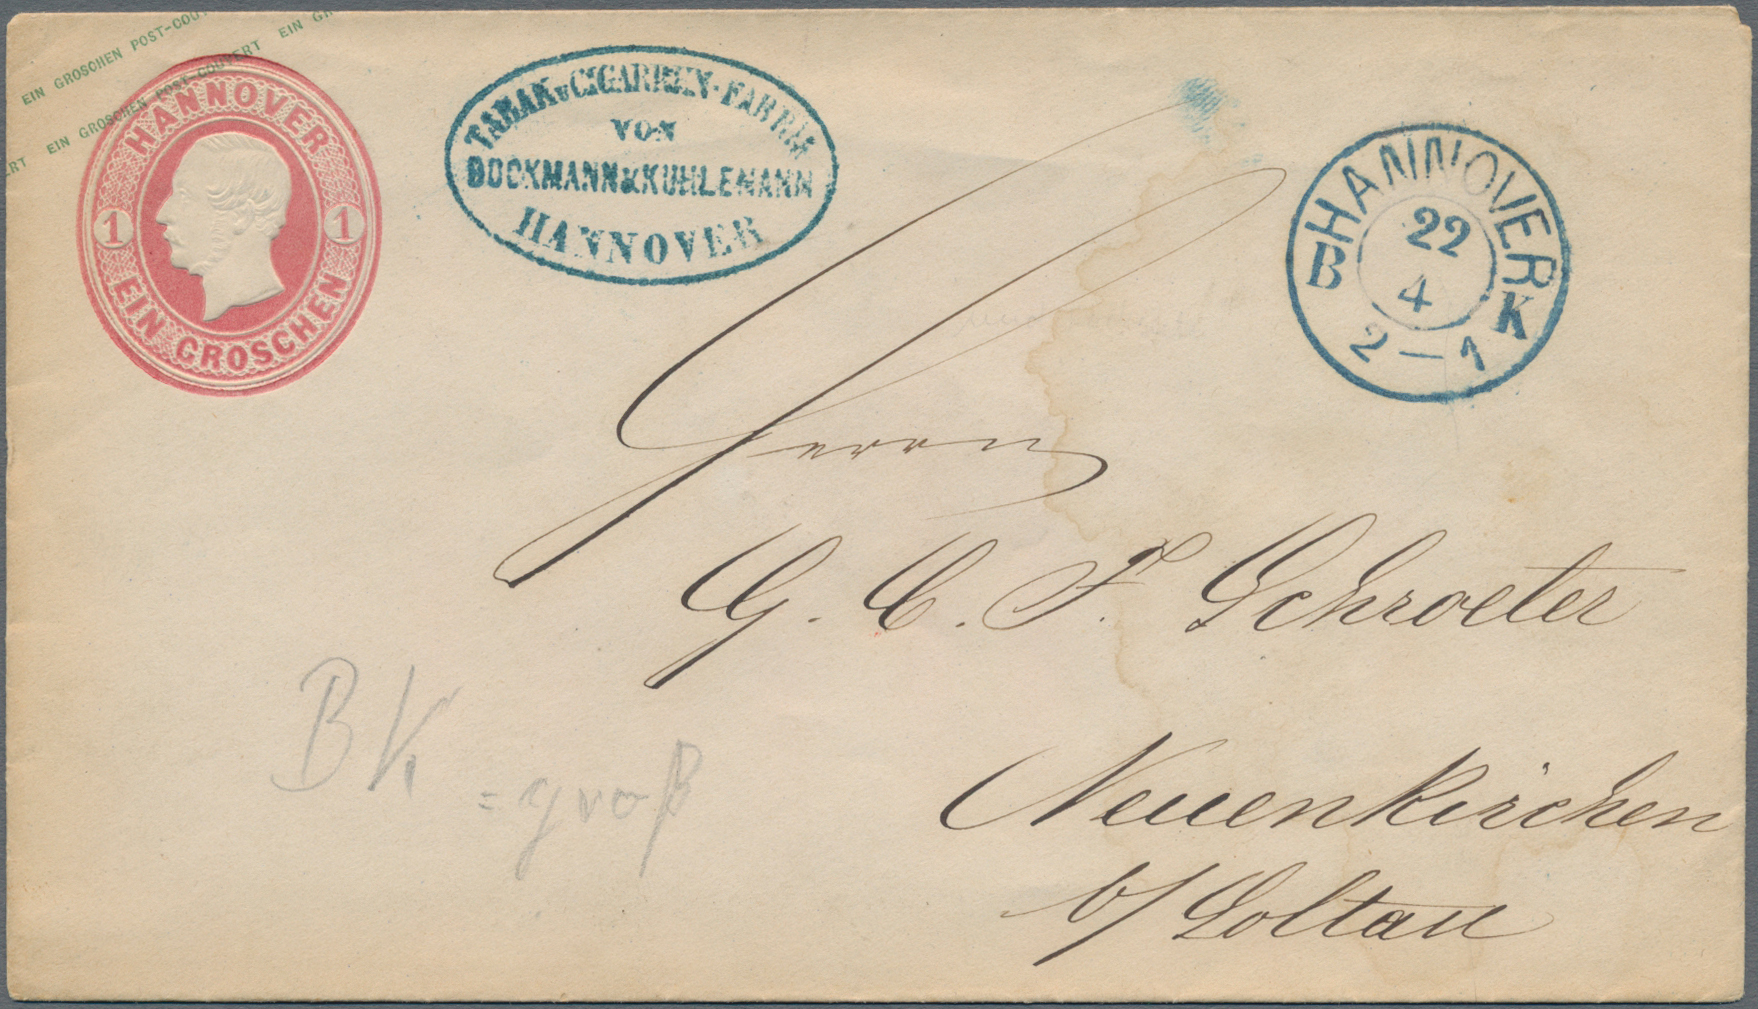 EIN GROSCHEN POST-COU
RT EIN GROSCHEN POST-COUVERT EIN GR
HANNOVER
1 1
EIN GROSCHEN
TABAK u CIGARREN-FABRIK
VON
BOCKMANN & KUHLEMANN
HANNOVER
HANNOVER
22
B 4 K
2-1
Herrn
G. C. F. Schroeter
Neuenkirchen
b/ Soltau
BK
=groß